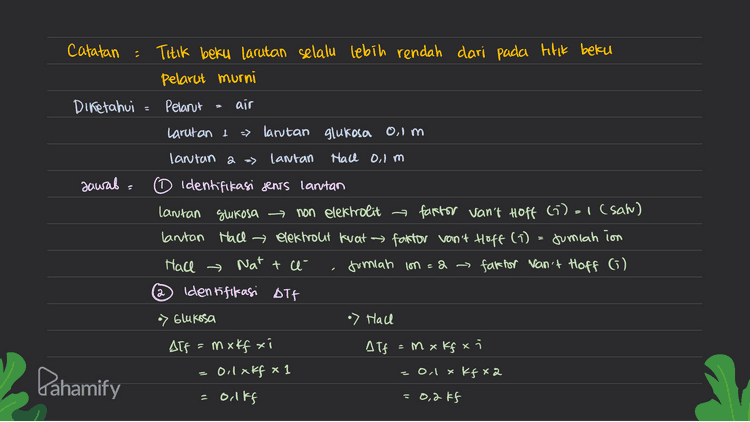 Catatan : Titik beku larutan selalu lebih rendah dari pada titik beku
pelarut murni
Diketahui = Pelarut = air
Larutan 1 => larutan glukosa 0,1 m
larutan 2 => larutan NaCl 0,1 m
Jawab = ① Identifikasi jenis larutan
larutan glukosa → non elektrolit → faktor van't Hoff (i) = 1 (satu)
larutan NaCl → elektrolit kuat → faktor van't Hoff (i) = jumlah ion
NaCl → Na⁺ + Cl⁻ , jumlah ion = 2 → faktor van't Hoff (i)
② Identifikasi ΔTf
•> Glukosa
ΔTf = m x Kf x i
= 0,1 x Kf x 1
= 0,1 Kf
•> NaCl
ΔTf = m x Kf x i
= 0,1 x Kf x 2
= 0,2 Kf
Pahamify